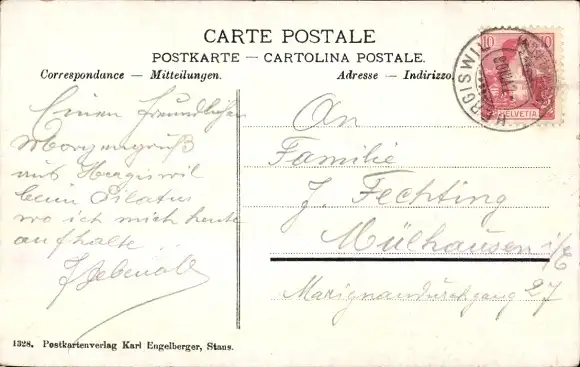 CARTE POSTALE
POSTKARTE — CARTOLINA POSTALE.
Correspondance — Mitteilungen.
Adresse — Indirizzo.
10 10
HERGISWIL
HELVETIA
Einen freundlichen
Morgengruß
aus Hergiswil
beim Pilatus
wo ich mich heute
aufhalte . .
An
Familie
J. Fechting
Mülhausen i/E
Marignandurchgang 27
1328. Postkartenverlag Karl Engelberger, Stans.